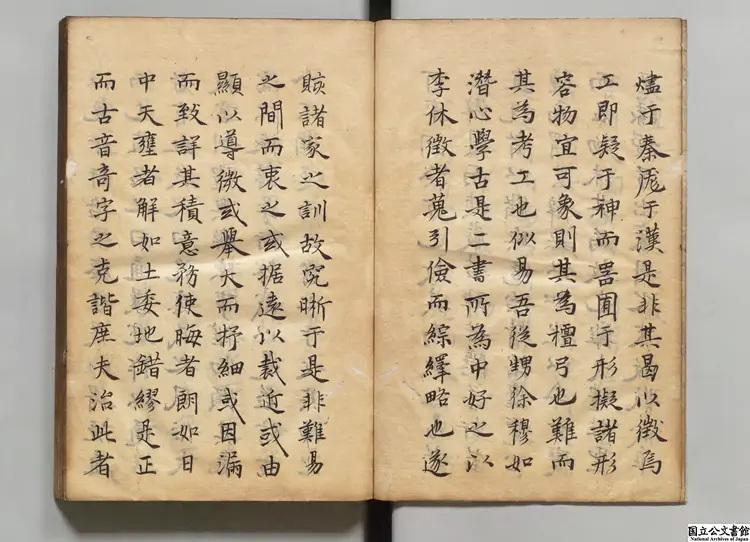 燼于秦厖于漢是非其曷以徵焉
工即疑于神而噐圉于形擬諸形
容物宜可象則其為檀弓也難而
其為考工也似易吾從甥徐穆如
潛心學古是二書所為中好之以
李休徵者蒐引儉而綜繹略也遂
賅諸家之訓故究晣于是非難易
之間而衷之或据遠以裁近或由
顯以導微或舉大而抒細或因漏
而致詳其積意務使晦者朗如日
中天壅者解如土委地錯繆是正
而古音竒字之克諧庶夫治此者
国立公文書館
National Archives of Japan